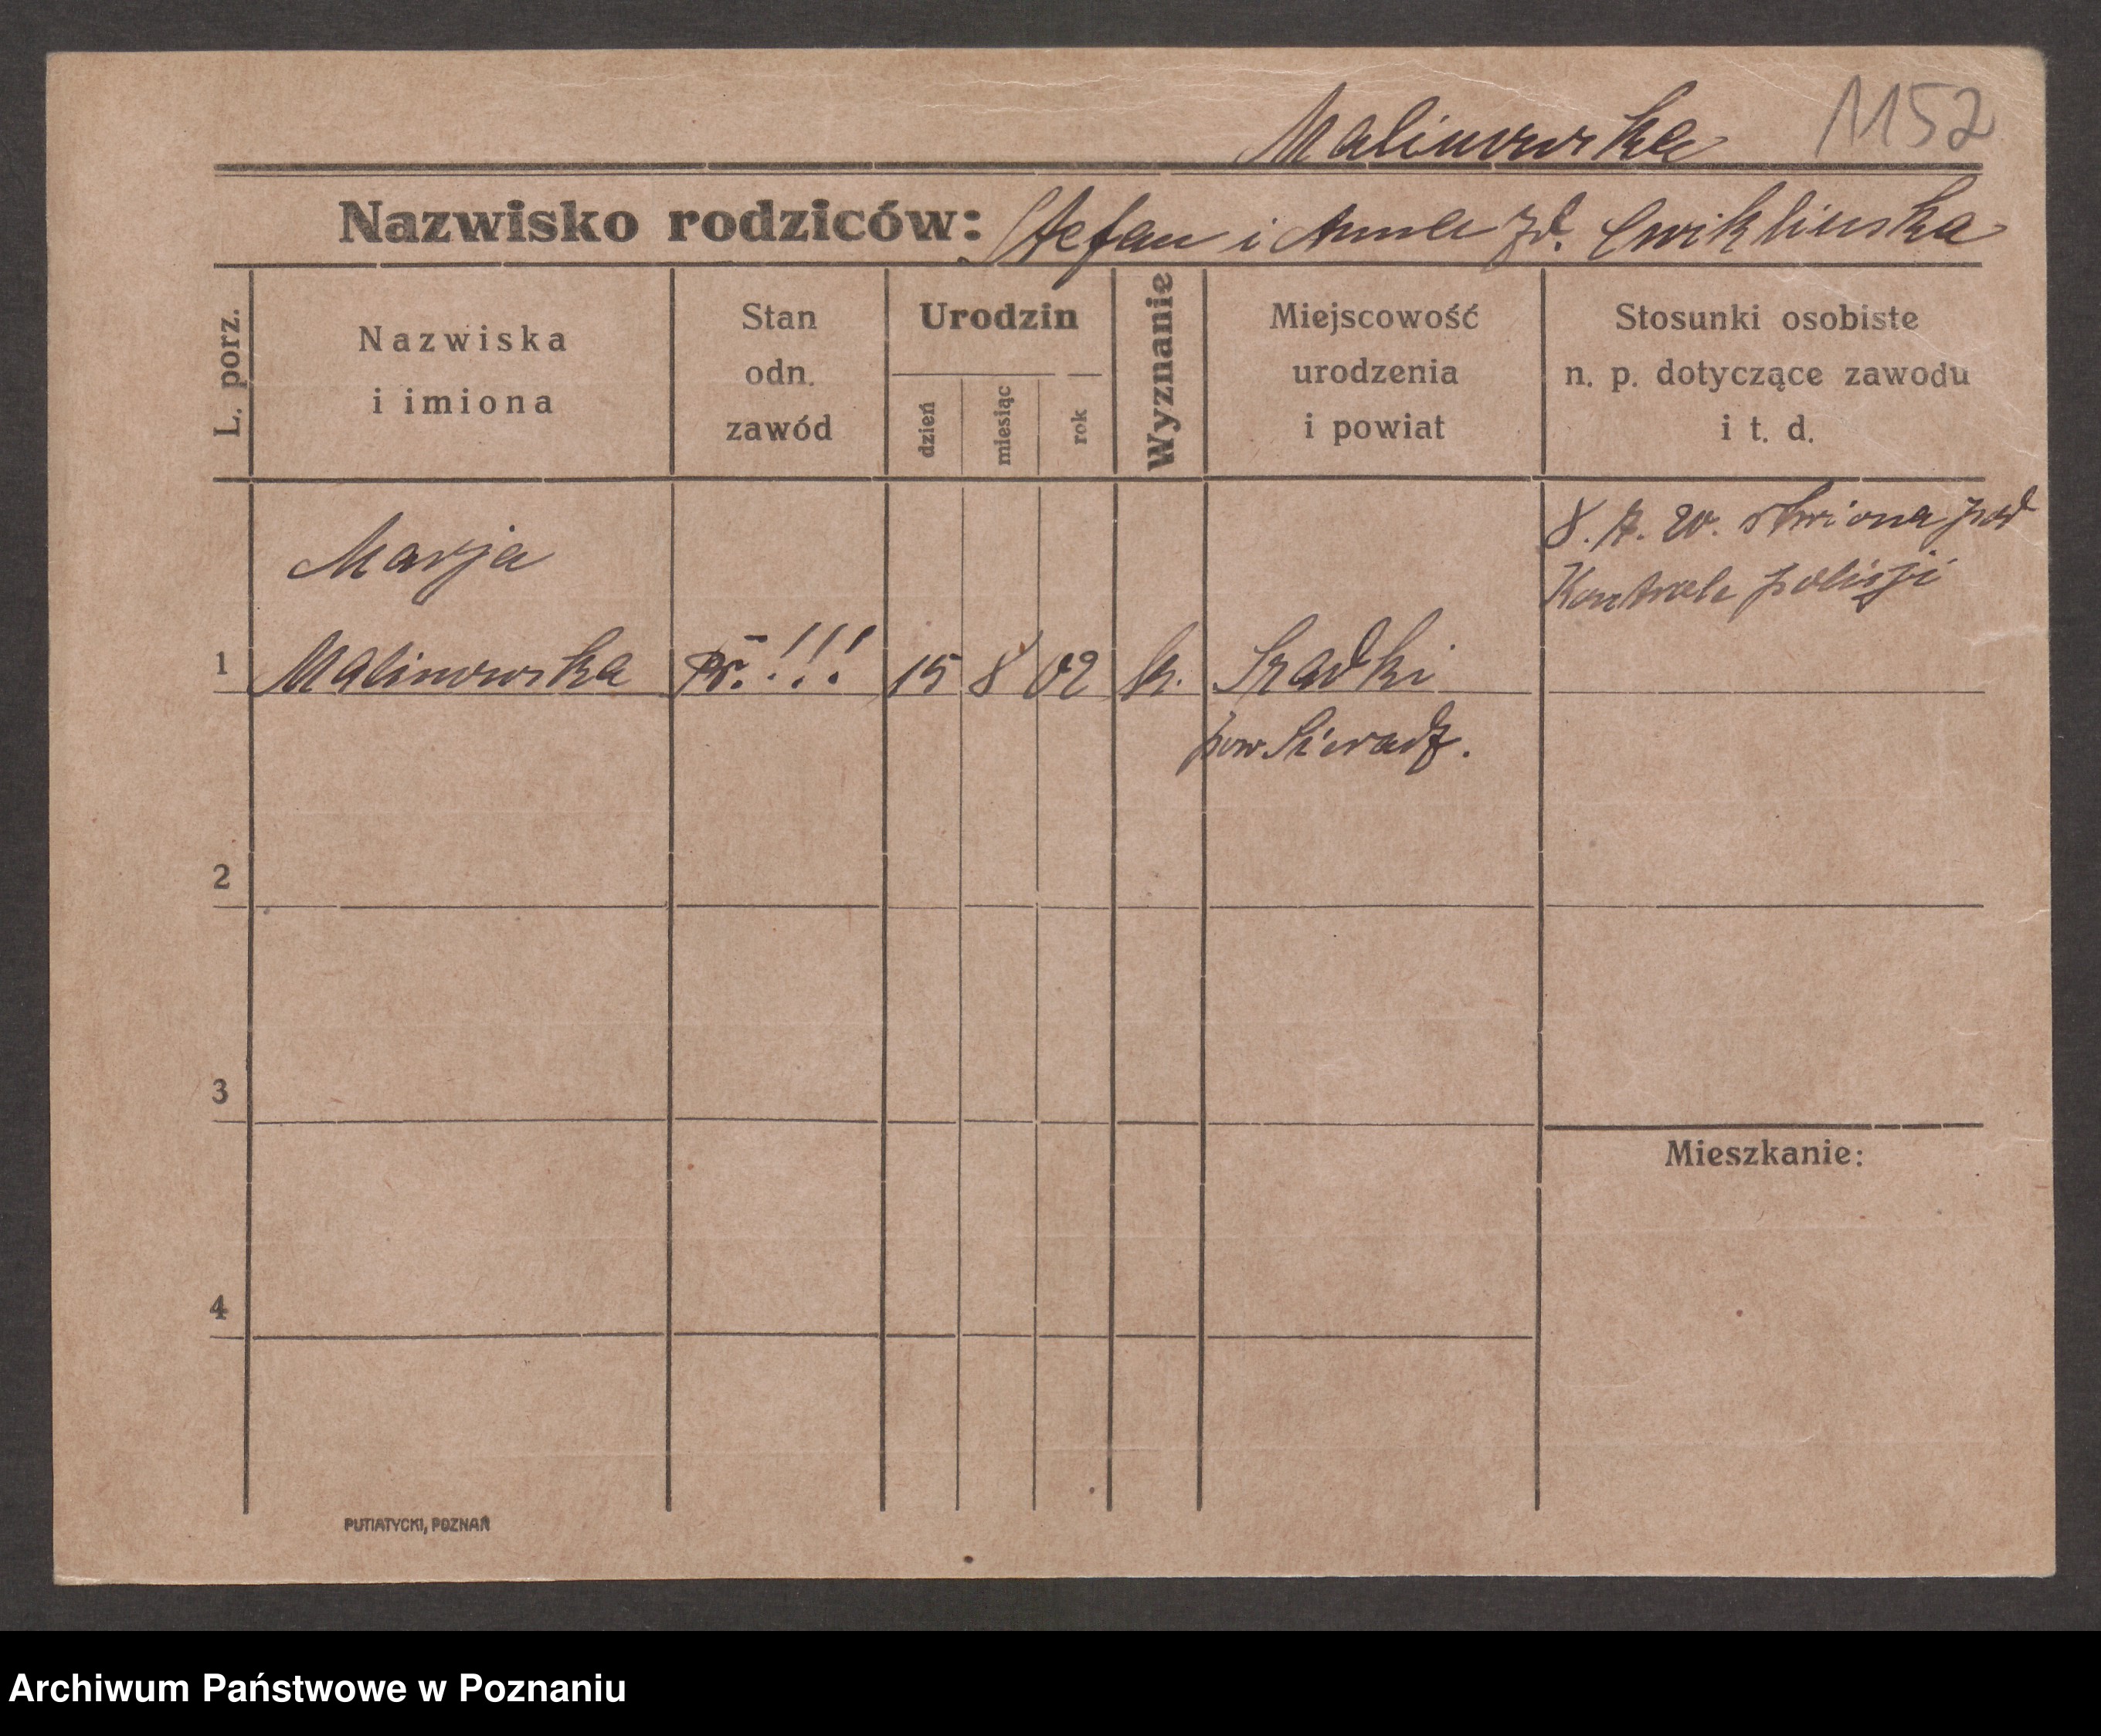 Malinowska 1152
Nazwisko rodziców: Stefan i Anna zd. Cwiklinska
L. porz.
Nazwiska
i imiona
Stan
odn.
zawód
Urodzin
dzień
miesiąc
rok
Wyznanie
Miejscowość
urodzenia
i powiat
Stosunki osobiste
n. p. dotyczące zawodu
i t. d.
Marja
8. pod
Kontrola policji
1 Malinowska !!! 15 8 02 k. Szadki
pow Sieradz.
2
3
Mieszkanie:
4
PUTIATYCKI, POZNAŃ
Archiwum Państwowe w Poznaniu